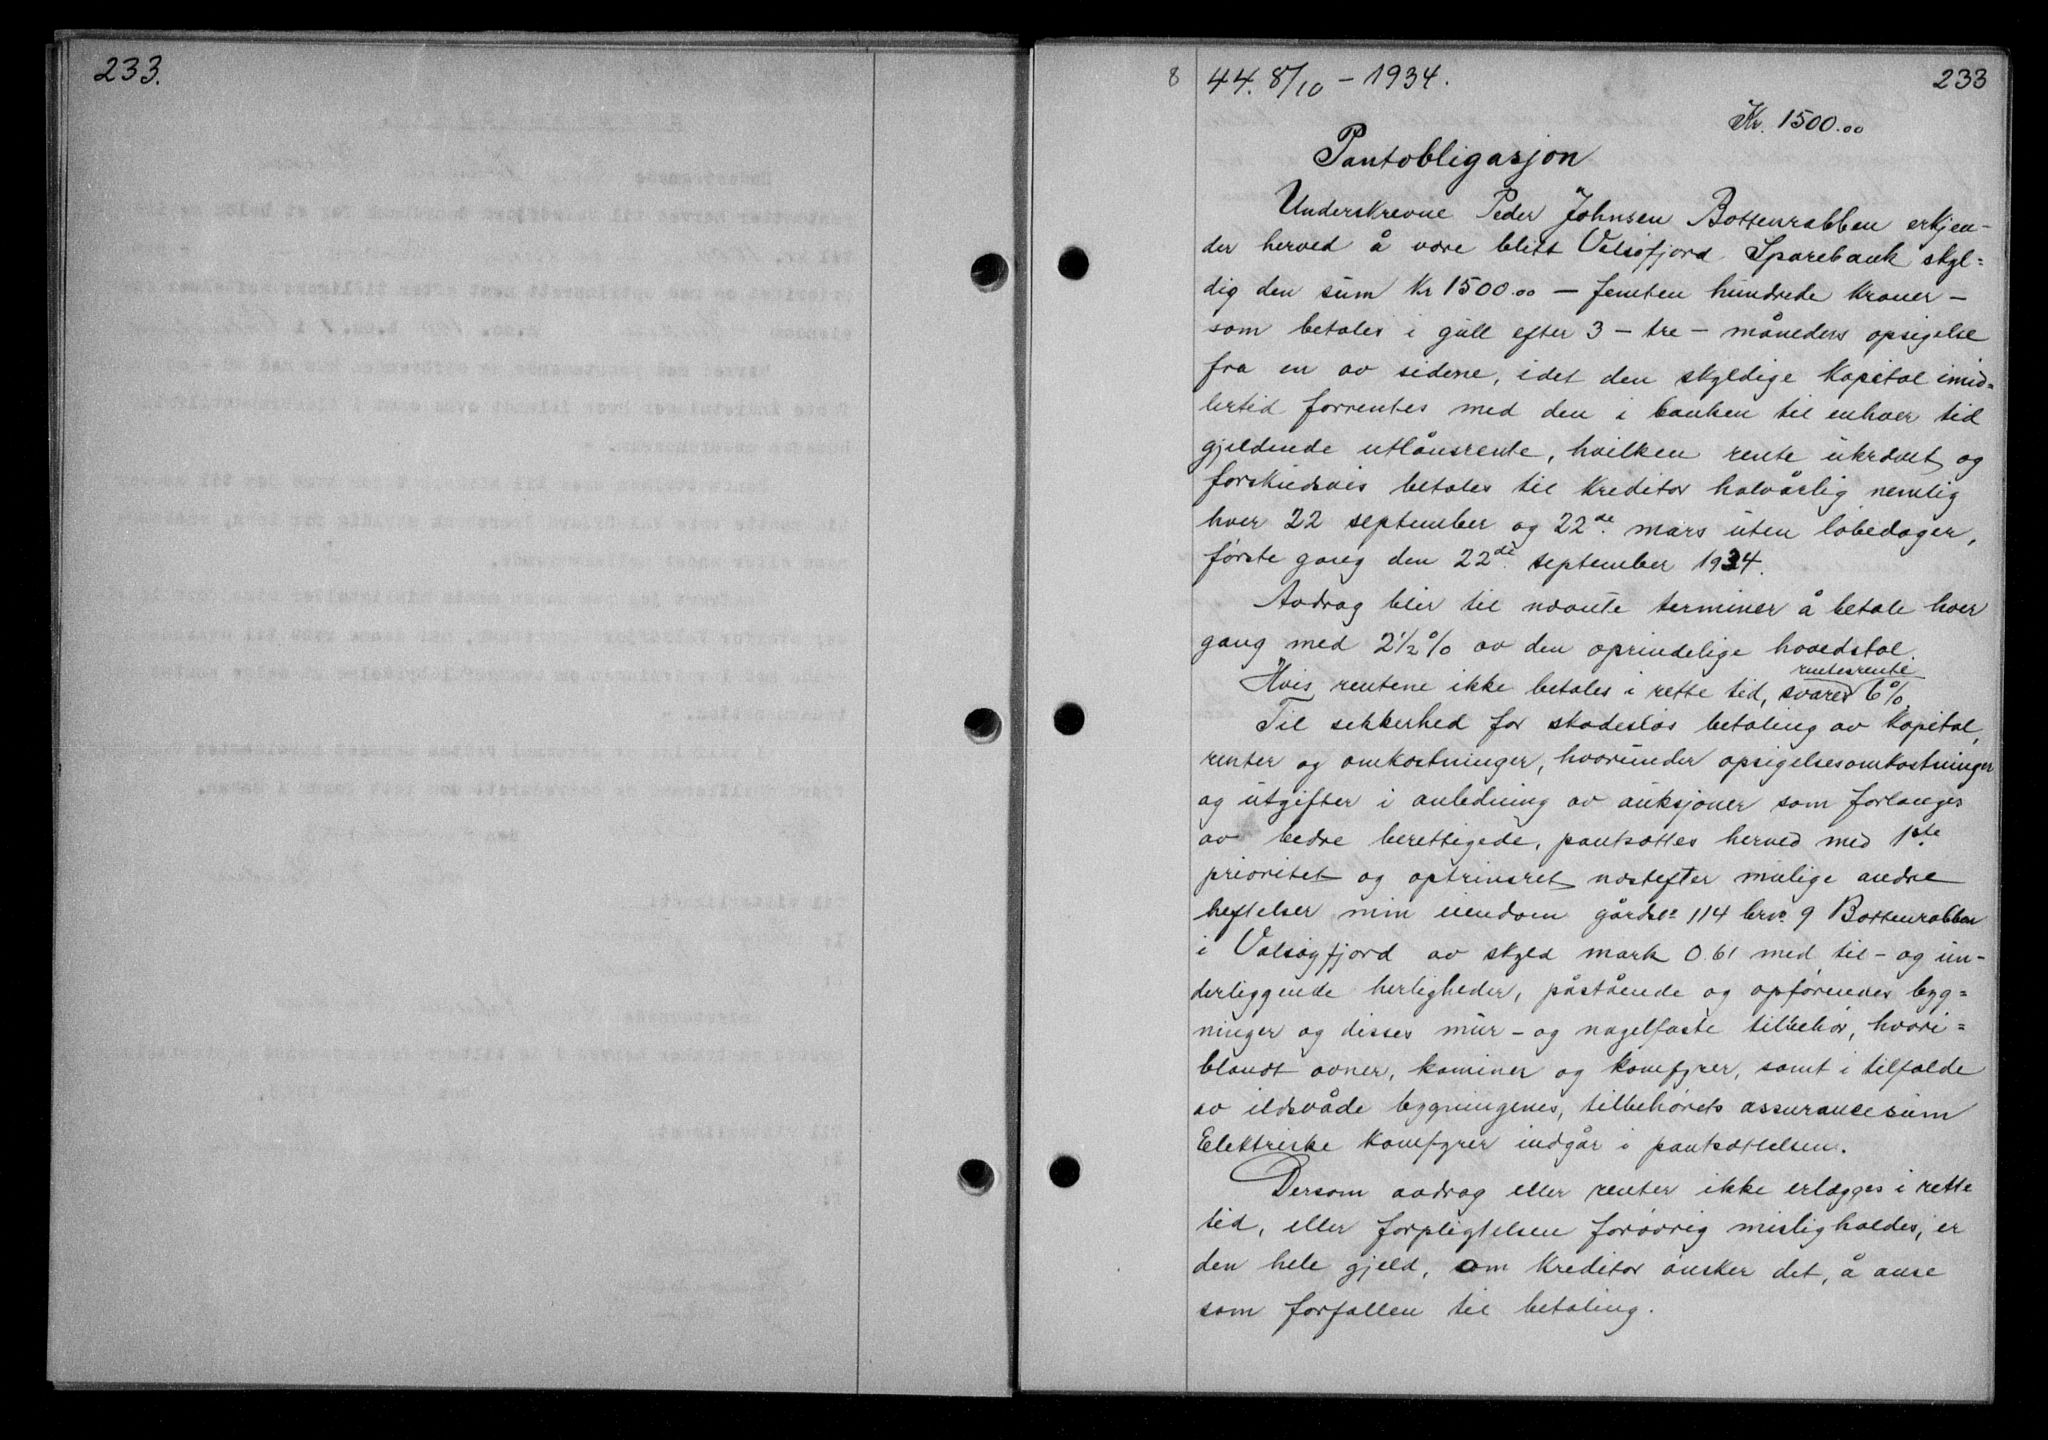 233.
8
44. 8/10 - 1934.
233
Kr. 1500.00
Pantobligasjon
Underskrevne Peder Johnsen Bottenrabben erkjen-
der herved å være blitt Valsøfjord Sparebank skyl=
dig den sum Kr 1500.00 - femten hundrede kroner -
som betales i gull efter 3 - tre - måneders opsigelse
fra en av sidene, idet den skyldige kapital imid=
lertid forrentes med den i banken til enhver tid
gjeldende utlånsrente, hvilken rente ukrævet og
forskudsvis betales til kreditor halvårlig nemlig
hver 22 september og 22de. mars uten løbedager,
første gang den 22de. september 1934.
Avdrag blir til nævnte terminer å betale hver
gang med 2½% av den oprindelige hovedstol.
Hvis rentene ikke betales i rette tid, svares rentesrente 6%.
Til sikkerhed for skadesløs betaling av kapital,
renter og omkostninger, hvorunder opsigelsesomkostninger
og utgifter i anledning av auksjoner som forlanges
av bedre berettigede, pantsættes herved med 1ste.
prioritet og optrinsret næstefter mulige andre
heftelser min eiendom gårdsno 114 brno. 9 Bottenrabben
i Valsøyfjord av skyld mark 0.61 med til- og un-
derliggende herligheder, påstående og opførendes byg=
ninger og disses mur- og nagelfaste tilbehør, hvori=
blandt ovner, kaminer og komfyrer, samt i tilfælde
av ildsvåde bygningenes, tilbehørets assurancesum
Elektriske komfyrer indgår i pantsættelsen.
Dersom avdrag eller renter ikke erlægges i rette
tid, eller forpligtelsen forøvrig misligholdes, er
den hele gjeld, om kreditor ønsker det, å anse
som forfallen til betaling.